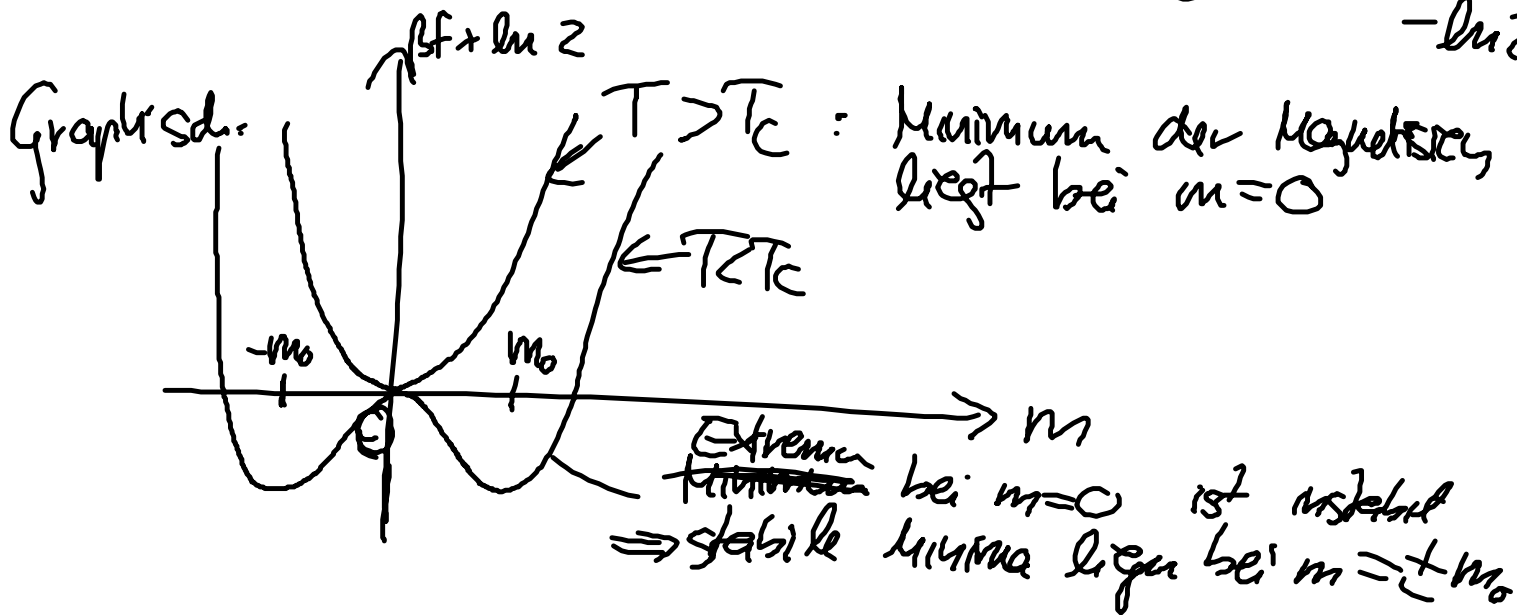 - ln 2
βf + ln 2
Graphisch:
T > Tc : Minimum der Magnetisier,
liegt bei m=0
← T<Tc
-m₀
m₀
0
m
Extrema
bei m=0 ist instabil
⇒ stabile Minima liegen bei m = ± m₀